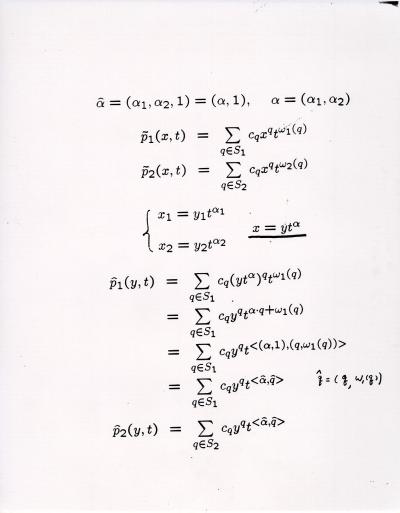 α̂ = (α₁, α₂, 1) = (α, 1), α = (α₁, α₂)
p̃₁(x, t) = ∑_{q∈S₁} c_q x^q t^{ω₁(q)}
p̃₂(x, t) = ∑_{q∈S₂} c_q x^q t^{ω₂(q)}
{ x₁ = y₁t^{α₁}
x = yt^α
x₂ = y₂t^{α₂}
p̂₁(y, t) = ∑_{q∈S₁} c_q (yt^α)^q t^{ω₁(q)}
= ∑_{q∈S₁} c_q y^q t^{α·q+ω₁(q)}
= ∑_{q∈S₁} c_q y^q t^{<(α,1),(q,ω₁(q))>}
= ∑_{q∈S₁} c_q y^q t^{<α̂,q̂>} q̂ = (q, ω₁(q))
p̂₂(y, t) = ∑_{q∈S₂} c_q y^q t^{<α̂,q̂>}